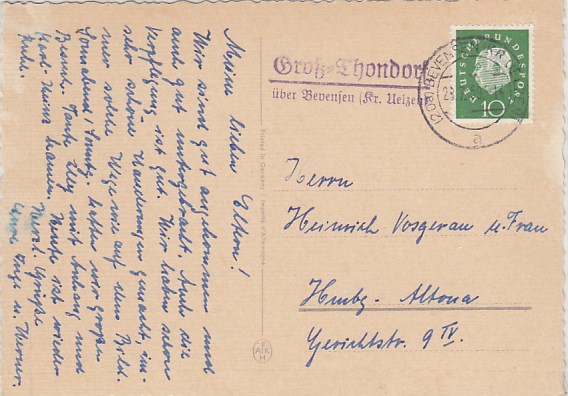 Meine lieben Eltern!
Wir sind gut angekommen und
auch gut untergebracht. Auch die
Verpflegung ist gut. Wir haben schon
sehr schöne Wanderungen gemacht, im-
mer solche Wege wie auf dem Bild.
Sonnabend/Sonntag hatten wir großen
Besuch. Tante mit Anhang und
waren hier. Heute ist wieder
Ruhe. Herzl. Grüße
Eure Inge u. Werner.
Groß-Thondorf
über Bevensen (Kr. Uelzen)
DEUTSCHE BUNDESPOST
10
(20a) BEVENSEN
a
Printed in Germany
Herrn
Heinrich Vosgerau u. Frau
Hmbg.-Altona
Gerichtstr. 9 IV.